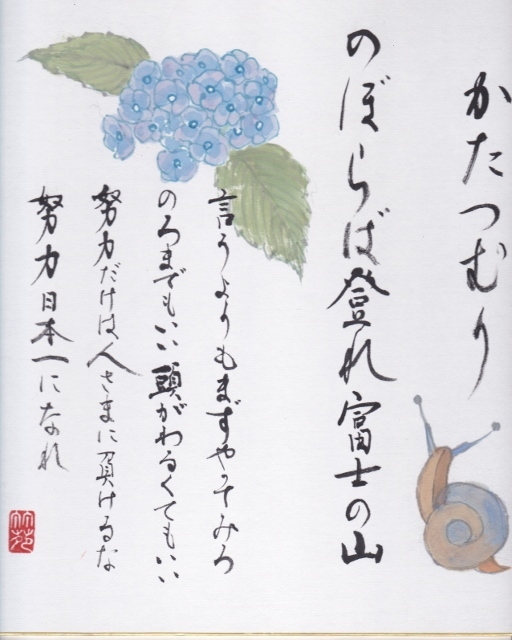 かたつむり
のぼらば登れ富士の山
言うよりもまずやってみろ
のろまでもいい頭がわるくてもいい
努力だけは人さまに負けるな
努力日本一になれ
竹苑